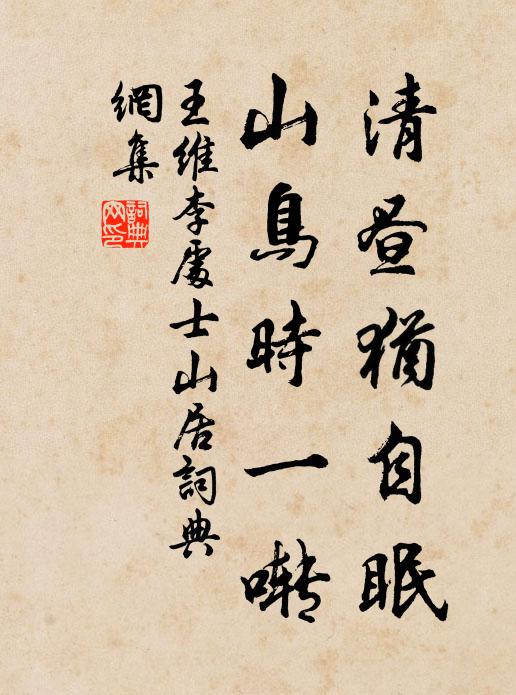 清晝猶自眠
山鳥時一囀
王維李處士山居詞典
網集
詞典
网印